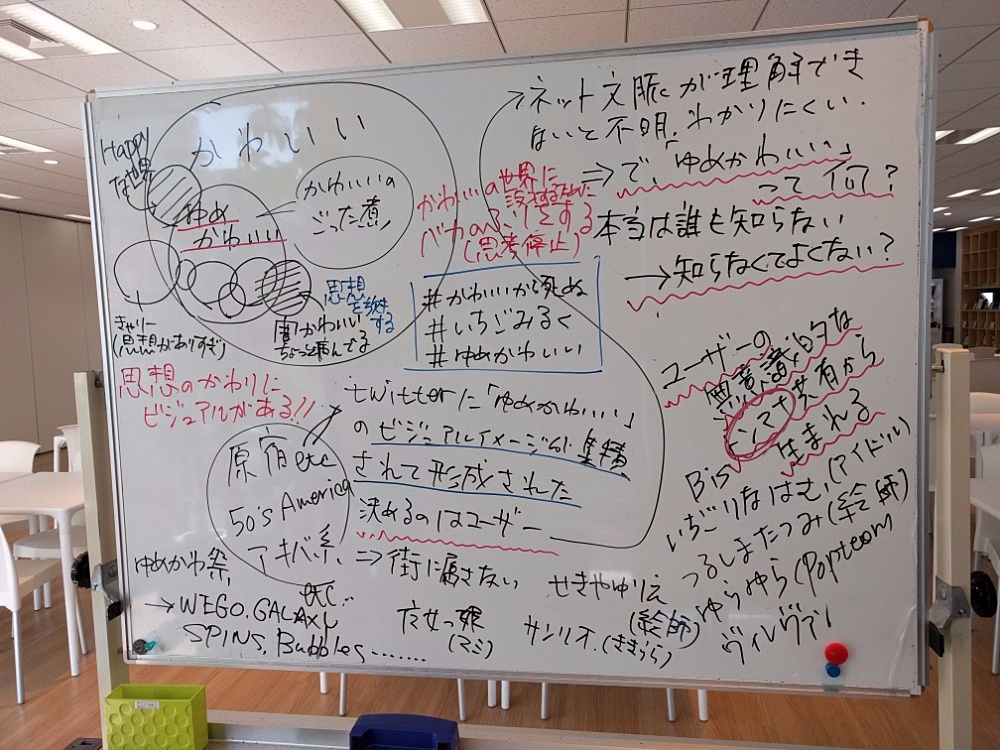 かわいい
Happy
な世界
かわいいの
ごった煮
ゆめ
かわいい
きゃりー
(思想がありすぎ)
闇かわいい
ちょっと病んでる
思想を
する
思想のかわりに
ビジュアルがある!!
かわいいの世界に
バカなふりをする
(思考停止)
#かわいいから死ぬ
#いちごみるく
#ゆめかわいい
→ネット文脈が理解でき
ないと不明。わかりにくい.
⇒で、「ゆめかわいい」
って何?
本当は誰も知らない
→知らなくてよくない?
ユーザーの
無意識的な
センス共有から
生まれる
twitterに「ゆめかわいい」
のビジュアルイメージが集積
されて形成された
決めるのはユーザー
⇒街に属さない
原宿etc
50's America
アキバ系、
etc..
ゆめかわ祭
→WEGO.GALAXY
SPINS, Bubbles.......
Bis
いちごりなはむ,(アイドル)
つるしまたつみ(絵師)
ゆらゆら(Popteen)
ヴィレヴァン
せきやゆりえ
(絵師)
サンリオ.(ききらら)